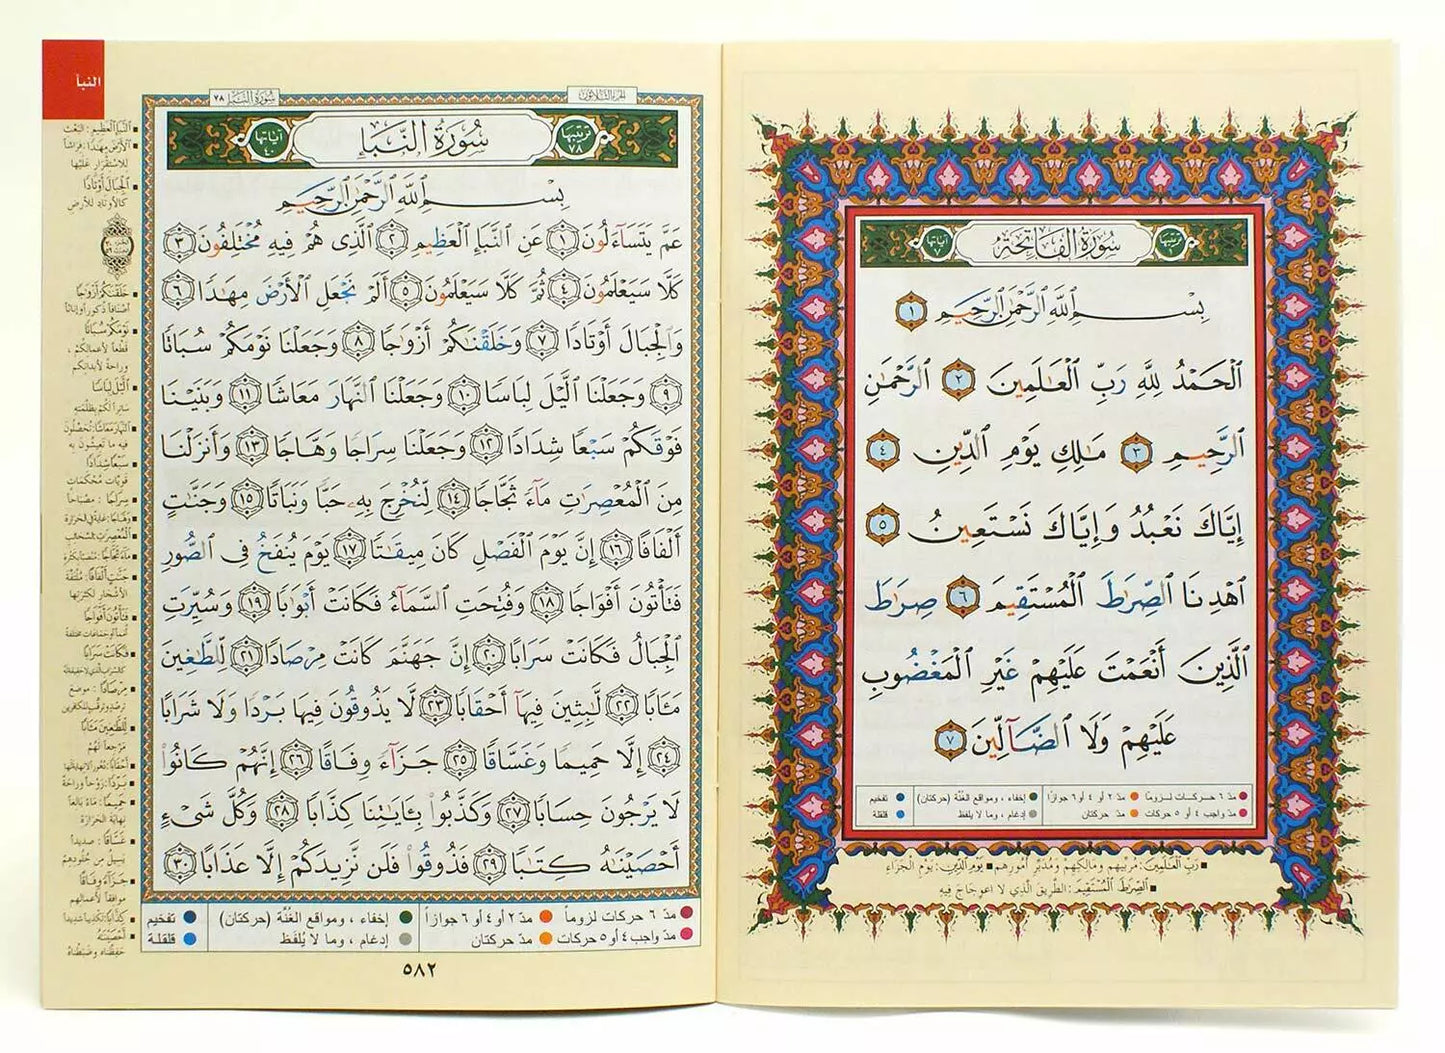 ترتيبها ١
سُورَةُ الفَاتِحَةِ
آياتها ٧
بِسْمِ ٱللَّهِ ٱلرَّحْمَٰنِ ٱلرَّحِيمِ ١
ٱلْحَمْدُ لِلَّهِ رَبِّ ٱلْعَٰلَمِينَ ٢ ٱلرَّحْمَٰنِ
ٱلرَّحِيمِ ٣ مَٰلِكِ يَوْمِ ٱلدِّينِ ٤
إِيَّاكَ نَعْبُدُ وَإِيَّاكَ نَسْتَعِينُ ٥
ٱهْدِنَا ٱلصِّرَٰطَ ٱلْمُسْتَقِيمَ ٦ صِرَٰطَ
ٱلَّذِينَ أَنْعَمْتَ عَلَيْهِمْ غَيْرِ ٱلْمَغْضُوبِ
عَلَيْهِمْ وَلَا ٱلضَّآلِّينَ ٧
مدّ ٦ حركات لزوماً مدّ ٢ أو ٤ أو ٦ جوازاً إخفاء ، ومواقع الغُنَّة (حركتان) تفخيم
مدّ واجب ٤ أو ٥ حركات مدّ حركتان إدغام ، وما لا يلفظ قلقلة
رَبِّ العَالَمِينَ: مُرَبِّيهِم وَمَالِكِهِم وَمُدَبِّرِ أُمُورِهِم يَوْمِ الدِّينِ: يَوْمِ الْجَزَاءِ
الصِّرَاطَ الْمُسْتَقِيمَ: الطَّرِيقَ الَّذِي لَا اعْوِجَاجَ فِيهِ
النبأ
الجزء الثلاثون
سُورَةُ النَّبَإِ ٧٨
ترتيبها ٧٨
سُورَةُ النَّبَإِ
آياتها ٤٠
بِسْمِ ٱللَّهِ ٱلرَّحْمَٰنِ ٱلرَّحِيمِ
عَمَّ يَتَسَآءَلُونَ ١ عَنِ ٱلنَّبَإِ ٱلْعَظِيمِ ٢ ٱلَّذِى هُمْ فِيهِ مُخْتَلِفُونَ ٣
كَلَّا سَيَعْلَمُونَ ٤ ثُمَّ كَلَّا سَيَعْلَمُونَ ٥ أَلَمْ نَجْعَلِ ٱلْأَرْضَ مِهَٰدًا ٦
وَٱلْجِبَالَ أَوْتَادًا ٧ وَخَلَقْنَٰكُمْ أَزْوَٰجًا ٨ وَجَعَلْنَا نَوْمَكُمْ سُبَاتًا
٩ وَجَعَلْنَا ٱلَّيْلَ لِبَاسًا ١٠ وَجَعَلْنَا ٱلنَّهَارَ مَعَاشًا ١١ وَبَنَيْنَا
فَوْقَكُمْ سَبْعًا شِدَادًا ١٢ وَجَعَلْنَا سِرَاجًا وَهَّاجًا ١٣ وَأَنزَلْنَا
مِنَ ٱلْمُعْصِرَٰتِ مَآءً ثَجَّاجًا ١٤ لِّنُخْرِجَ بِهِۦ حَبًّا وَنَبَاتًا ١٥ وَجَنَّٰتٍ
أَلْفَافًا ١٦ إِنَّ يَوْمَ ٱلْفَصْلِ كَانَ مِيقَٰتًا ١٧ يَوْمَ يُنفَخُ فِى ٱلصُّورِ
فَتَأْتُونَ أَفْوَاجًا ١٨ وَفُتِحَتِ ٱلسَّمَآءُ فَكَانَتْ أَبْوَٰبًا ١٩ وَسُيِّرَتِ
ٱلْجِبَالُ فَكَانَتْ سَرَابًا ٢٠ إِنَّ جَهَنَّمَ كَانَتْ مِرْصَادًا ٢١ لِّلطَّٰغِينَ
مَـَٔابًا ٢٢ لَّٰبِثِينَ فِيهَآ أَحْقَابًا ٢٣ لَّا يَذُوقُونَ فِيهَا بَرْدًا وَلَا شَرَابًا
٢٤ إِلَّا حَمِيمًا وَغَسَّاقًا ٢٥ جَزَآءً وِفَاقًا ٢٦ إِنَّهُمْ كَانُوا۟
لَا يَرْجُونَ حِسَابًا ٢٧ وَكَذَّبُوا۟ بِـَٔايَٰتِنَا كِذَّابًا ٢٨ وَكُلَّ شَىْءٍ
أَحْصَيْنَٰهُ كِتَٰبًا ٢٩ فَذُوقُوا۟ فَلَن نَّزِيدَكُمْ إِلَّا عَذَابًا ٣٠
مدّ ٦ حركات لزوماً مدّ ٢ أو ٤ أو ٦ جوازاً إخفاء ، ومواقع الغُنَّة (حركتان) تفخيم
مدّ واجب ٤ أو ٥ حركات مدّ حركتان إدغام ، وما لا يُلفَظ قلقلة
٥٨٢
النَّبَإِ العَظِيمِ: البَعْث
الأَرْضَ مِهَٰدًا: فِرَاشاً
لِلِاسْتِقْرَارِ عَلَيْهَا
الْجِبَالَ أَوْتَادًا
كَالأَوْتَادِ لِلأَرْضِ
خَلَقْنَاكُمْ أَزْوَاجًا
أَصْنَافاً ذُكُوراً وَإِنَاثاً
نَوْمَكُمْ سُبَاتًا
قَطْعاً لأَعْمَالِكُمْ ،
وَرَاحَةً لأَبْدَانِكُم
الَّيْلَ لِبَاسًا
سَاتِراً لَكُمْ بِظُلْمَتِهِ
النَّهَارَ مَعَاشًا: تُحَصِّلُونَ
فِيهِ مَا تَعِيشُونَ بِهِ
سَبْعًا شِدَادًا
قَوِيَّاتٍ مُحْكَمَاتٍ
سِرَاجًا : مِصْبَاحاً
جَنَّاتٍ أَلْفَافًا: مُلْتَفَّةَ
الأَشْجَارِ لِكَثْرَتِهَا
فَتَأْتُونَ أَفْوَاجًا
فَكَانَتْ سَرَابًا
مِرْصَادًا : مَوْضِعَ
لِلطَّاغِينَ مَـَٔابًا
مَرْجِعاً لَهُمْ
بَرْدًا: رَوْحاً وَرَاحَةً
حَمِيمًا: مَاءً بَالِغاً
نِهَايَةَ الْحَرَارَةِ
غَسَّاقًا: صَدِيداً
يَسِيلُ مِنْ جُلُودِهِمْ
جَزَآءً وِفَاقًا:
مُوَافِقاً لأَعْمَالِهِم
كِذَّابًا: تَكْذِيباً شَدِيداً
أَحْصَيْنَٰهُ
حَفِظْنَاهُ وَضَبَطْنَاهُ